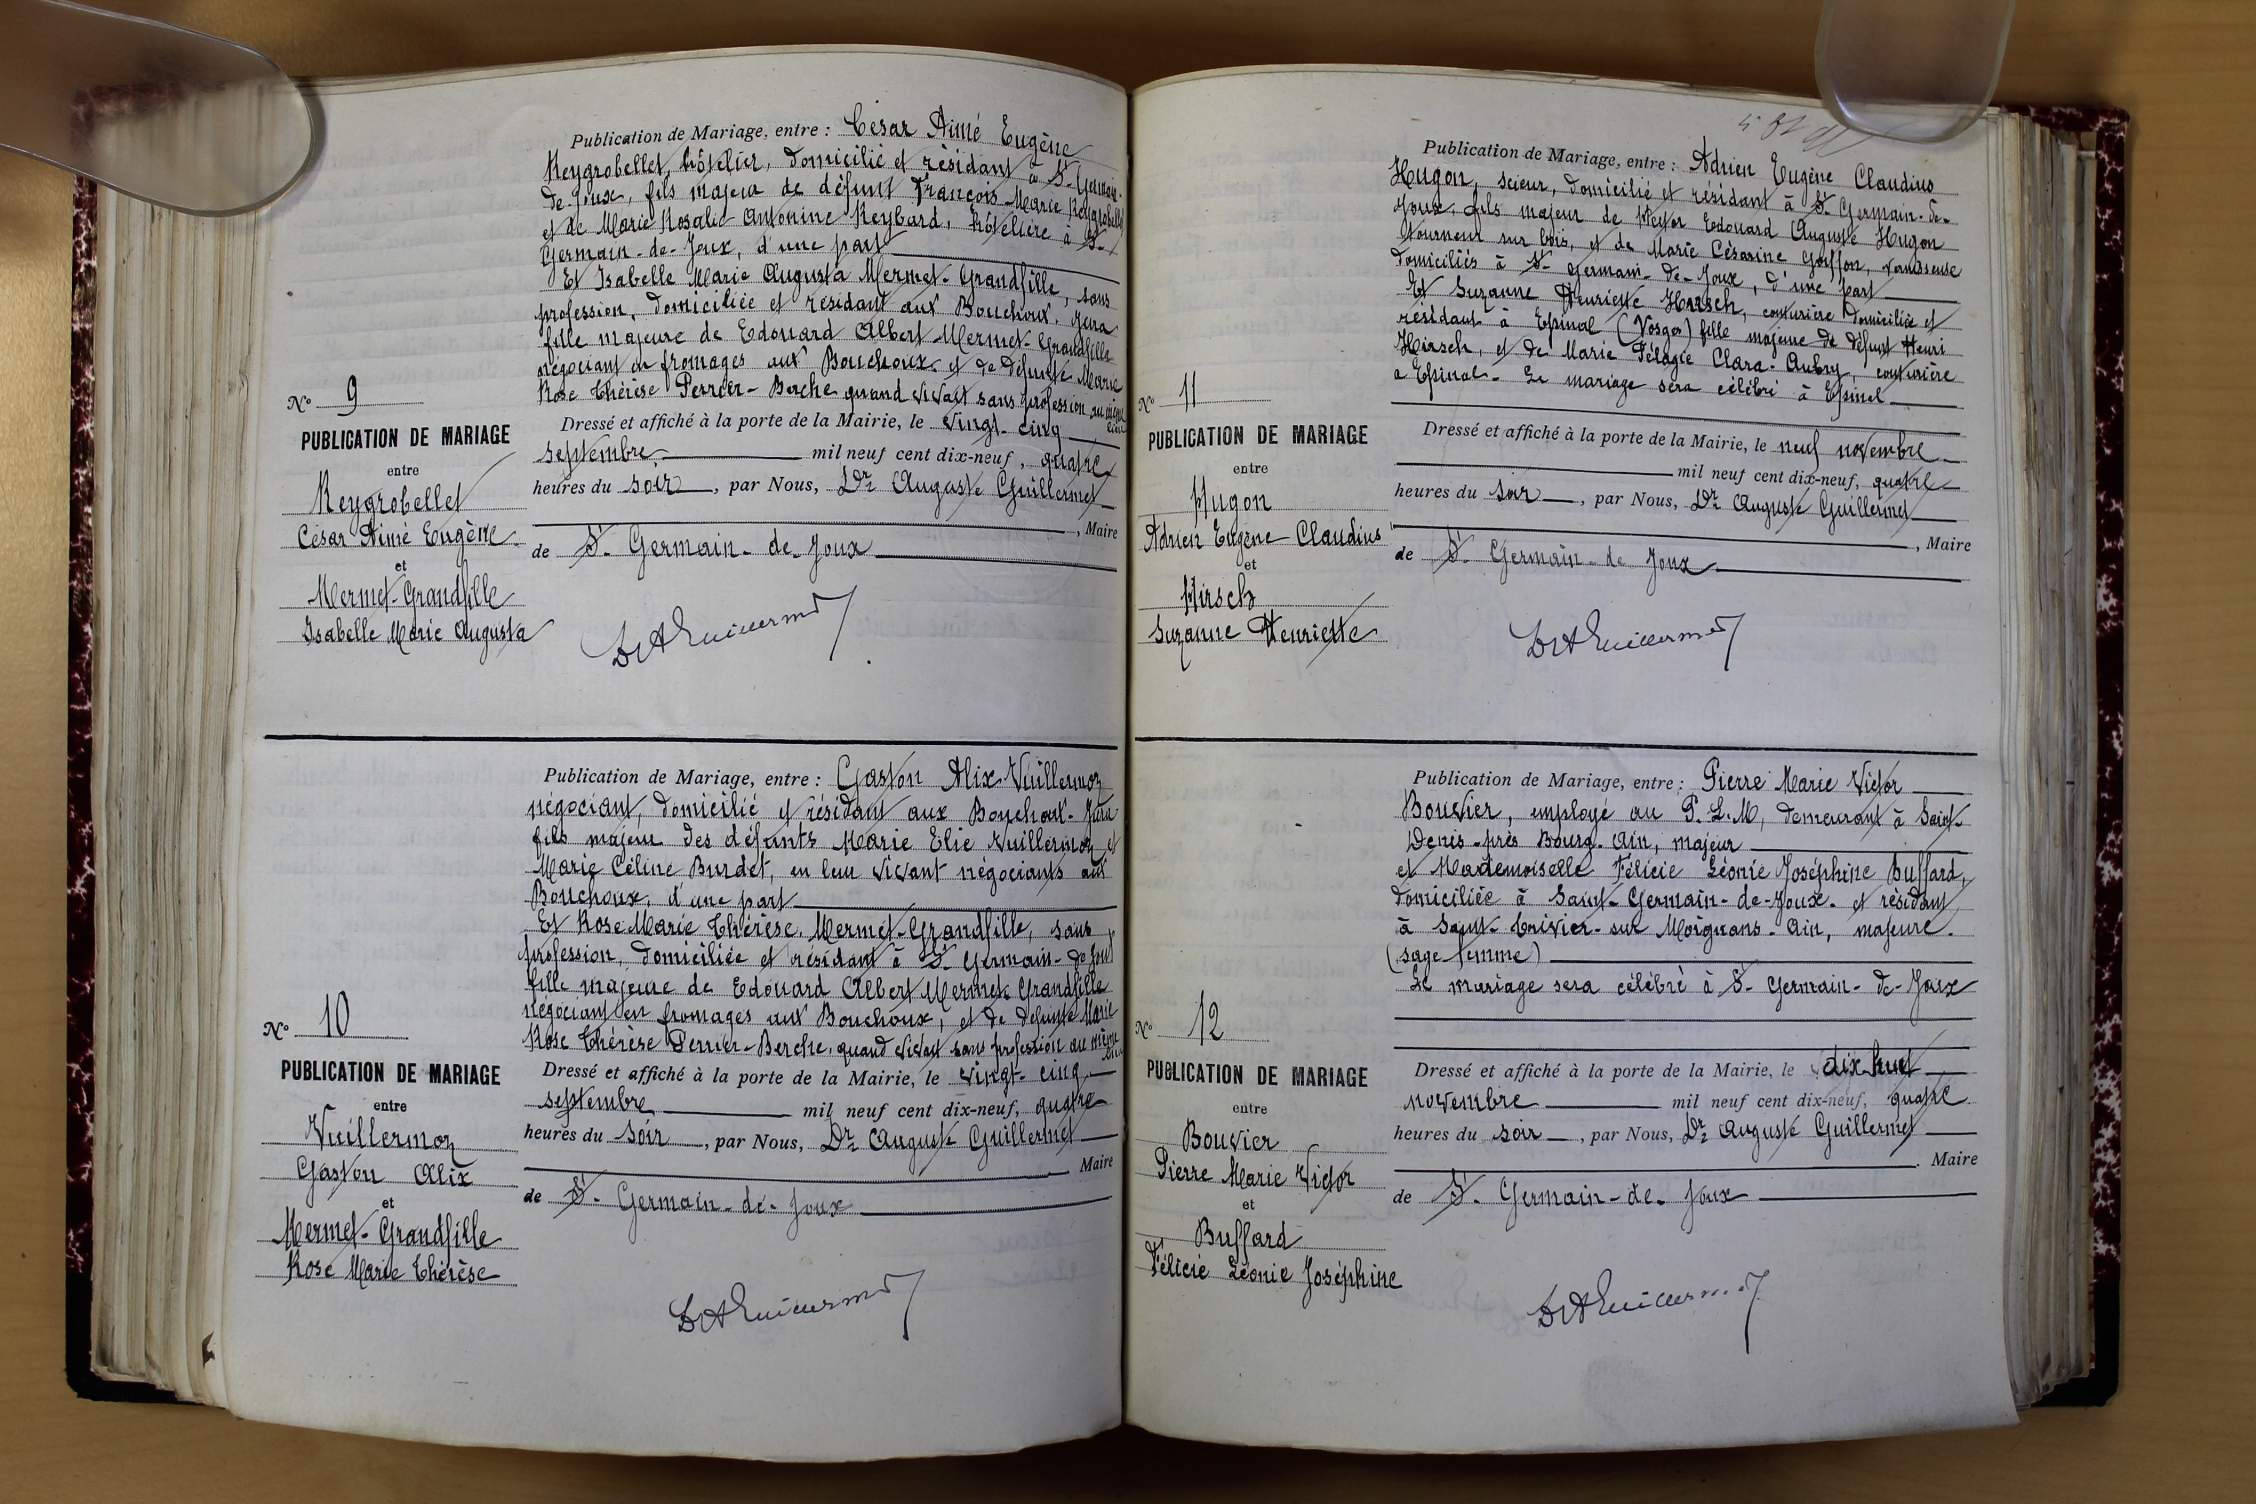 N° 9
PUBLICATION DE MARIAGE
entre
Reygrobellet
César Aimé Eugène
et
Mermet-Grandfille
Isabelle Marie Augusta
Publication de Mariage, entre : César Aimé Eugène
Reygrobellet, hôtelier, domicilié et résidant à St-Germain-
de-Joux, fils majeur de défunt François-Marie Reygrobellet
et de Marie Rosalie Antonine Reybard, hôtelière à St-
Germain-de-Joux, d'une part
Et Isabelle Marie Augusta Mermet-Grandfille, sans
profession, domiciliée et résidant aux Bouchoux, Jura
fille majeure de Edouard Albert Mermet-Grandfille
négociant en fromages aux Bouchoux, et de défunte Marie
Rose Thérèse Perrier-Berche quand vivait sans profession au même
lieu
Dressé et affiché à la porte de la Mairie, le vingt-cinq
septembre mil neuf cent dix-neuf, quatre
heures du soir, par Nous, Dr Auguste Guillermet
, Maire
de St-Germain-de-Joux
Dr A Guillermet
N° 10
PUBLICATION DE MARIAGE
entre
Vuillermoz
Gaston Alix
et
Mermet-Grandfille
Rose Marie Thérèse
Publication de Mariage, entre : Gaston Alix Vuillermoz
négociant, domicilié et résidant aux Bouchoux-Jura
fils majeur des défunts Marie Elie Vuillermoz et
Marie Céline Burdet, en leur vivant négociants aux
Bouchoux, d'une part
Et Rose Marie Thérèse, Mermet-Grandfille, sans
profession, domiciliée et résidant à St-Germain-de-Joux
fille majeure de Edouard Albert Mermet-Grandfille
négociant en fromages aux Bouchoux, et de défunte Marie
Rose Thérèse Perrier-Berche, quand vivait sans profession au même
lieu
Dressé et affiché à la porte de la Mairie, le vingt-cinq
septembre mil neuf cent dix-neuf, quatre
heures du soir, par Nous, Dr Auguste Guillermet
Maire
de St-Germain-de-Joux
Dr A Guillermet
N° 11
PUBLICATION DE MARIAGE
entre
Hugon
Adrien Eugène Claudius
et
Hirsch
Suzanne Henriette
Publication de Mariage, entre : Adrien Eugène Claudius
Hugon, scieur, domicilié et résidant à St-Germain-de-
Joux, fils majeur de Victor Edouard Auguste Hugon
tourneur sur bois, et de Marie Césarine Goiffon,
domiciliés à St-Germain-de-Joux, d'une part
Et Suzanne Henriette Hirsch, couturière domiciliée et
résidant à Epinal (Vosges) fille majeure de défunt Henri
Hirsch, et de Marie Pélagie Clara Aubry, couturière
à Epinal. Le mariage sera célébré à Epinal
Dressé et affiché à la porte de la Mairie, le neuf novembre
mil neuf cent dix-neuf, quatre
heures du soir, par Nous, Dr Auguste Guillermet
, Maire
de St-Germain-de-Joux
Dr A Guillermet
N° 12
PUBLICATION DE MARIAGE
entre
Bouvier
Pierre Marie Victor
et
Buffard
Félicie Léonie Joséphine
Publication de Mariage, entre : Pierre Marie Victor
Bouvier, employé au P.L.M, demeurant à Saint-
Denis-près Bourg-Ain, majeur
et Mademoiselle Félicie Léonie Joséphine Buffard,
domiciliée à Saint-Germain-de-Joux- et résidant
à Saint-Trivier-sur Moignans-Ain, majeure.
(sage femme)
Le mariage sera célébré à St-Germain-de-Joux
Dressé et affiché à la porte de la Mairie, le dix huit
novembre mil neuf cent dix-neuf, quatre
heures du soir, par Nous, Dr Auguste Guillermet
Maire
de St-Germain-de-Joux
Dr A Guillermet